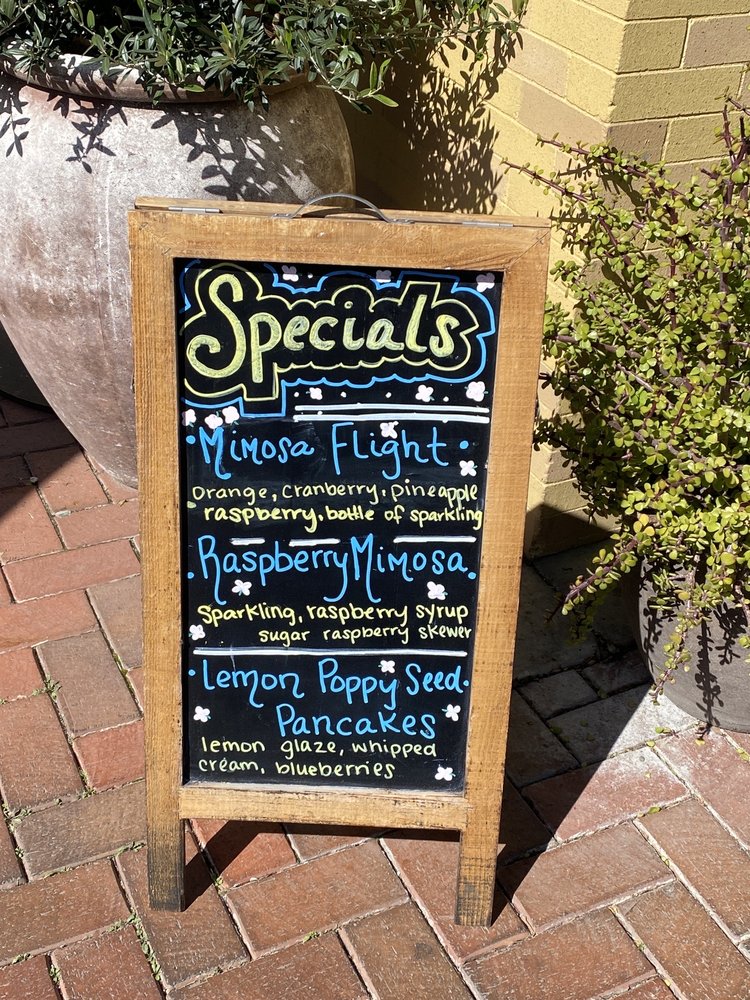 Specials
• Mimosa Flight •
orange, cranberry, pineapple
raspberry, bottle of sparkling
• Raspberry Mimosa •
Sparkling, raspberry syrup
sugar raspberry skewer
• Lemon Poppy Seed •
Pancakes
lemon glaze, whipped
cream, blueberries